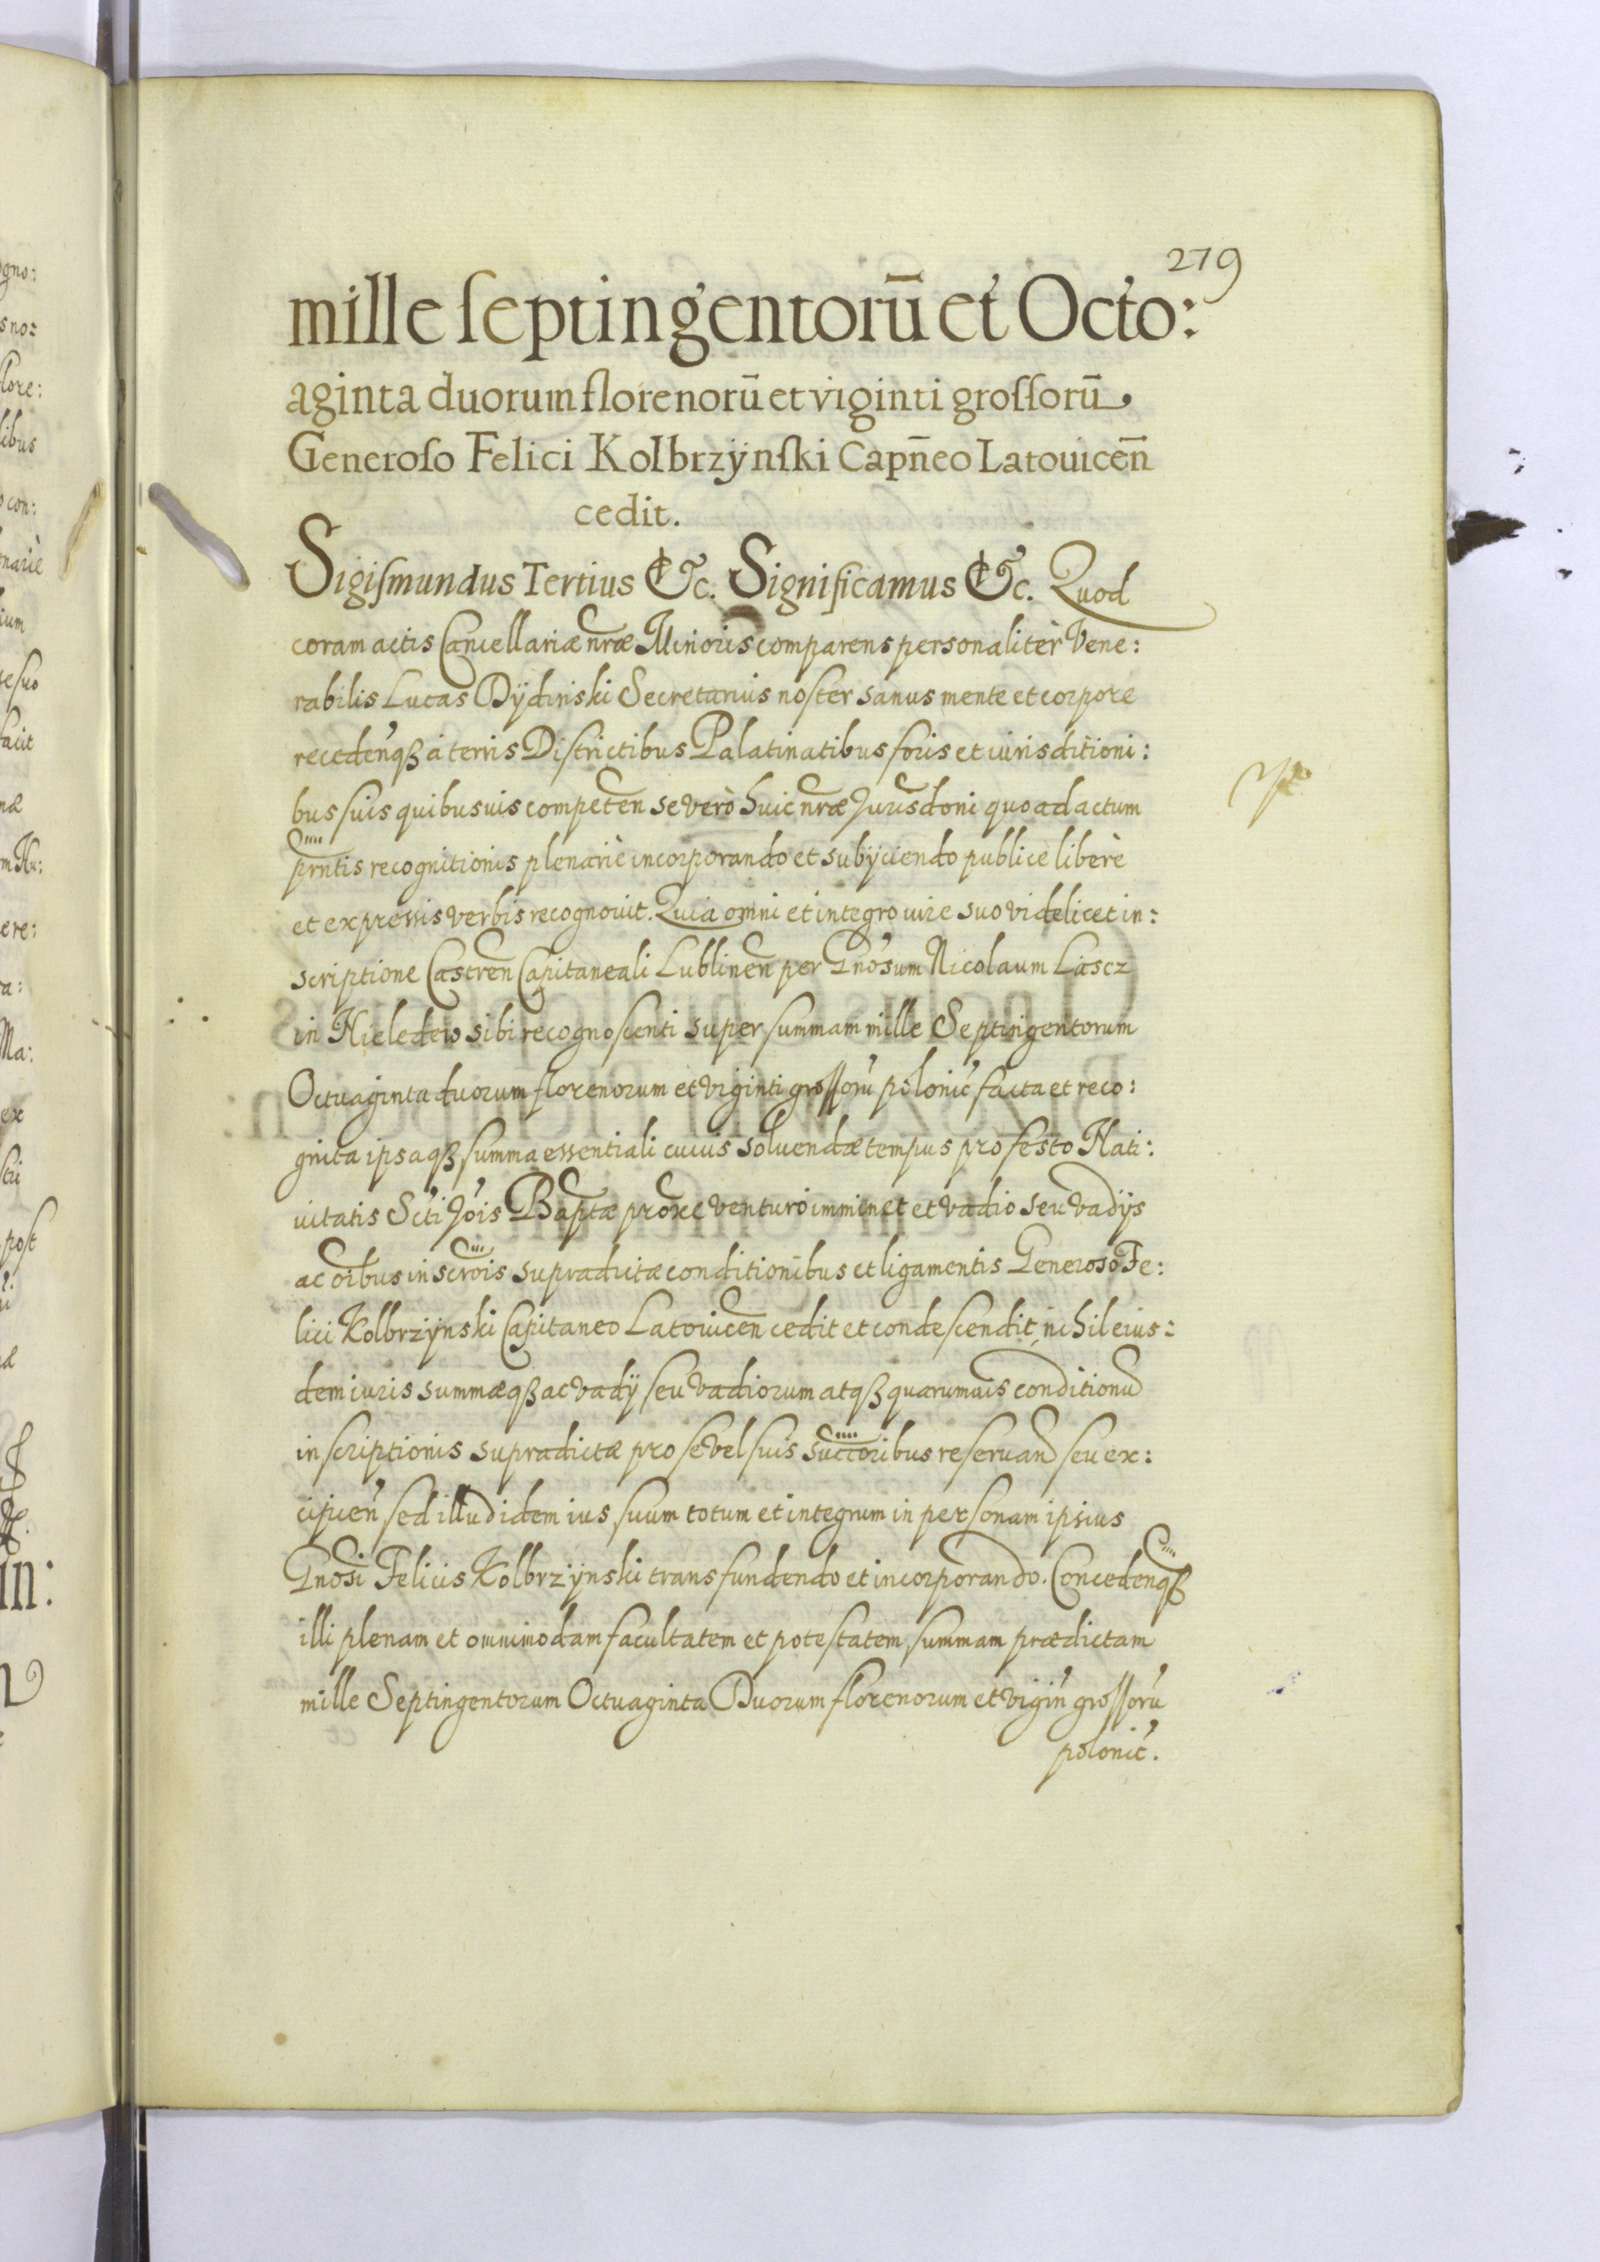 279
mille septingentorū et Octo:
aginta duorum florenorū et viginti grossorū
Generoso Felici Kolbrzÿnski Capn̄eo Latouicen̄
cedit.
Sigismundus Tertius &c. Significamus &c. Quod
coram actis Cancellariæ nr̄æ Minoris comparens personalitèr Vene:
rabilis Lucas Dÿdinski Secretarius noster sanus mente et corpore
recedenqꝫ à terris Districtibus Palatinatibus foris et iurisditioni:
bus suis quibusuis competen̄ se verò huic nr̄æ Jurisdoni quoad actum
prn̄tis recognitionis plenariè incorporando et subÿciendo publicè liberè
et expressis verbis recognouit. Quia omni et integro iure suo videlicet in:
scriptione Castren̄ Capitaneali Lublinen̄ per Gnosum Nicolaum Lascz
in Nieledew sibi recognoscenti super summam mille Septingentorum
Octuaginta duorum florenorum et viginti grossorū polonic̄ facta et reco:
gnita ipsaqꝫ summa essentiali cuius soluendæ tempus pro festo Nati:
uitatis Scti Jois Baptæ proxe venturo imminet et vadio seu vadÿs
ac oibus inscrois supradictæ conditionibus et ligamentis Generoso Fe:
lici Kolbrzÿnski Capitaneo Latouicen̄ cedit et condescendit, nihil eius:
dem iuris summæqꝫ ac vadÿ seu vadiorum atqꝫ quarumuis conditionū
inscriptionis supradictæ pro se vel suis succoribus reseruan̄ seu ex:
cipien̄ sed illud idem ius suum totum et integrum in personam ipsius
Gnosi Felicis Kolbrzÿnski transfundendo et incorporando. Concedenqꝫ
illi plenam et omnimodam facultatem et potestatem, summam prædictam
mille Septingentorum Octuaginta Duorum florenorum et vigin̄ grossorū
polonic̄.